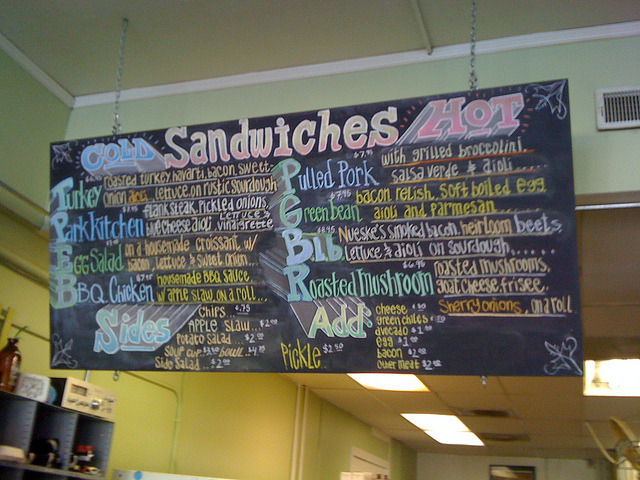 COLD Sandwiches HOT
Turkey roasted turkey, havarti, bacon, sweet
onion aioli, lettuce, on rustic sourdough
Park kitchen flank steak, pickled onions,
blue cheese aioli, lettuce & vinaigrette
Egg Salad on a housemade croissant, w/
bacon, lettuce & sweet onion
BBQ Chicken housemade BBQ sauce
w/ apple slaw, on a roll...
Sides
Chips $.75
Apple Slaw.. $2.00
Potato Salad... $2.00
Soup cup $3.50 bowl $4.75
Side Salad... $2.00
Pulled Pork $7.95 with grilled broccolini,
salsa verde & aioli....
Green bean $7.95 bacon relish, soft boiled egg
aioli and parmesan
Blb $8.95 Nueske's smoked bacon, heirloom beets,
lettuce & aioli on sourdough......
Roasted Mushroom $6.95 roasted mushrooms,
goat cheese, frisee,
Sherry onions, on a roll
Add:
Pickle $2.50
cheese
green chiles
avocado $1.00
egg $1.00
bacon $2.00
other meat $2.00